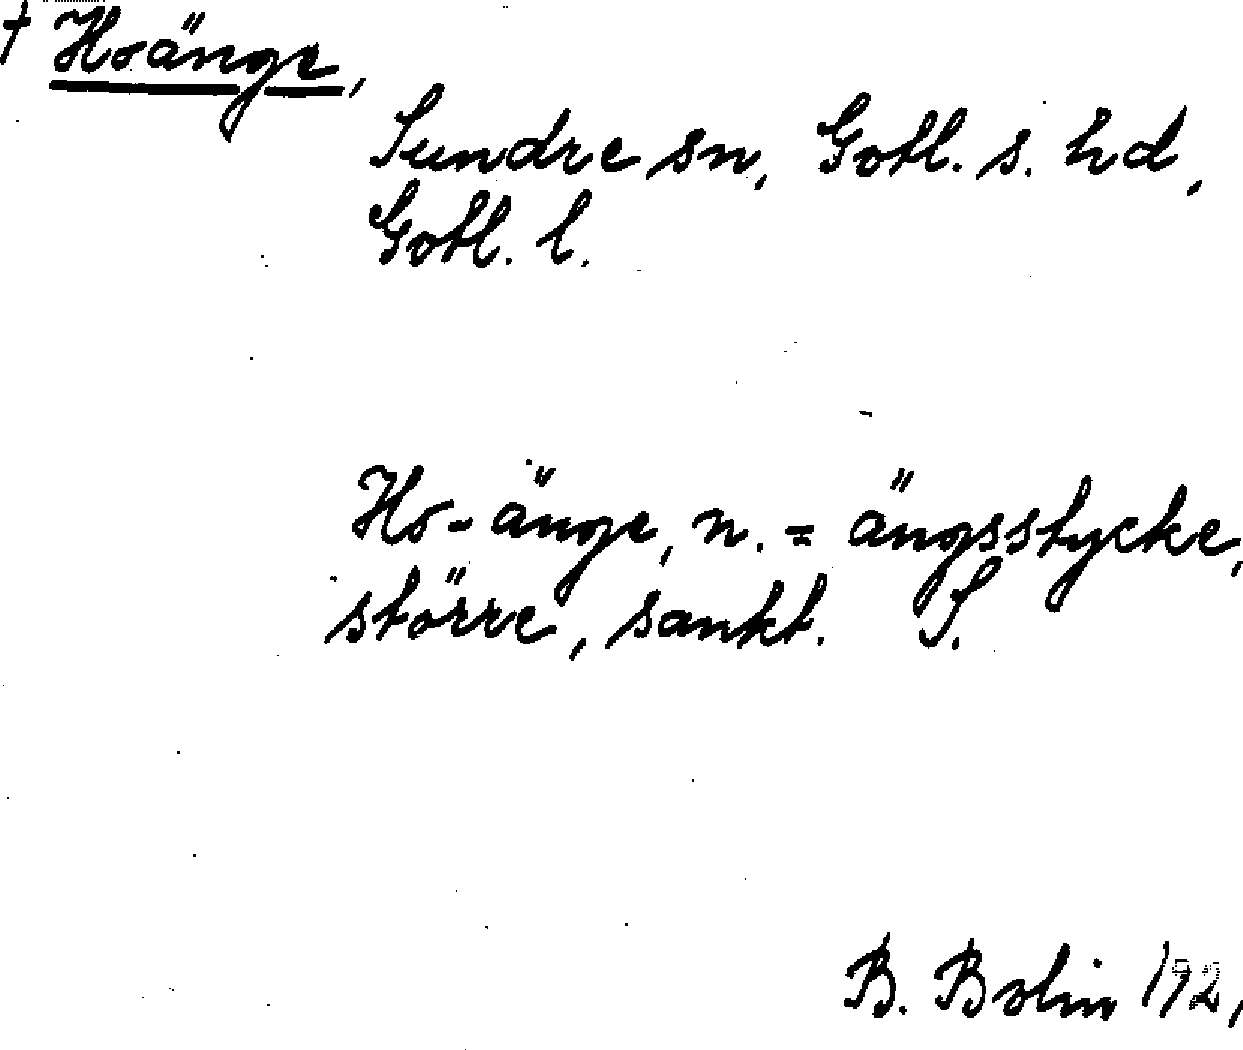 † Hoänge,
Sundre sn, Gotl. s. hd,
Gotl. l.
Ho-änge, n. = ängsstycke,
större, sankt. S.
B. Bolin 192